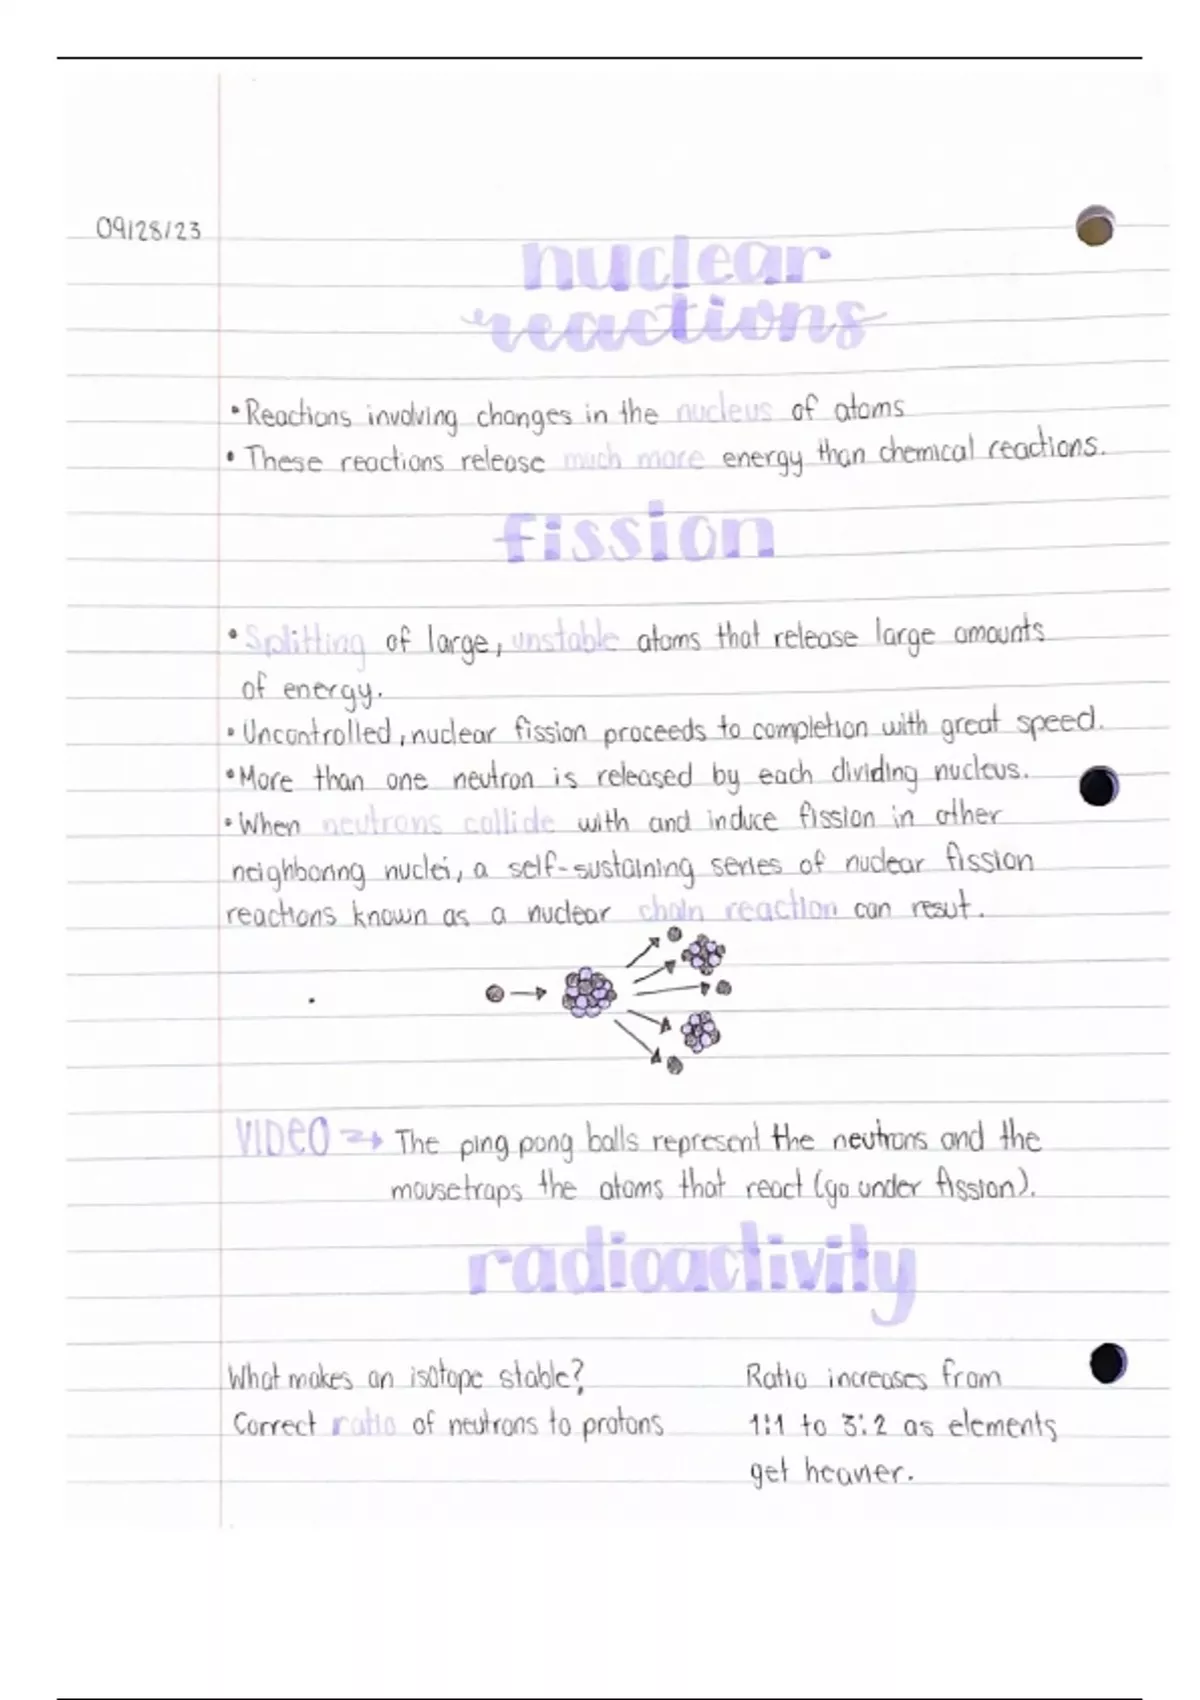 09/28/23
nuclear
reactions
• Reactions involving changes in the nucleus of atoms
• These reactions release much more energy than chemical reactions.
fission
• Splitting of large, unstable atoms that release large amounts
of energy.
• Uncontrolled, nuclear fission proceeds to completion with great speed.
• More than one neutron is released by each dividing nucleus.
• When neutrons collide with and induce fission in other
neighboring nuclei, a self-sustaining series of nuclear fission
reactions known as a nuclear chain reaction can resut.
VIDEO → The ping pong balls represent the neutrons and the
mousetraps the atoms that react (go under fission).
radioactivity
What makes an isotope stable? Ratio increases from
Correct ratio of neutrons to protons 1:1 to 3:2 as elements
get heavier.